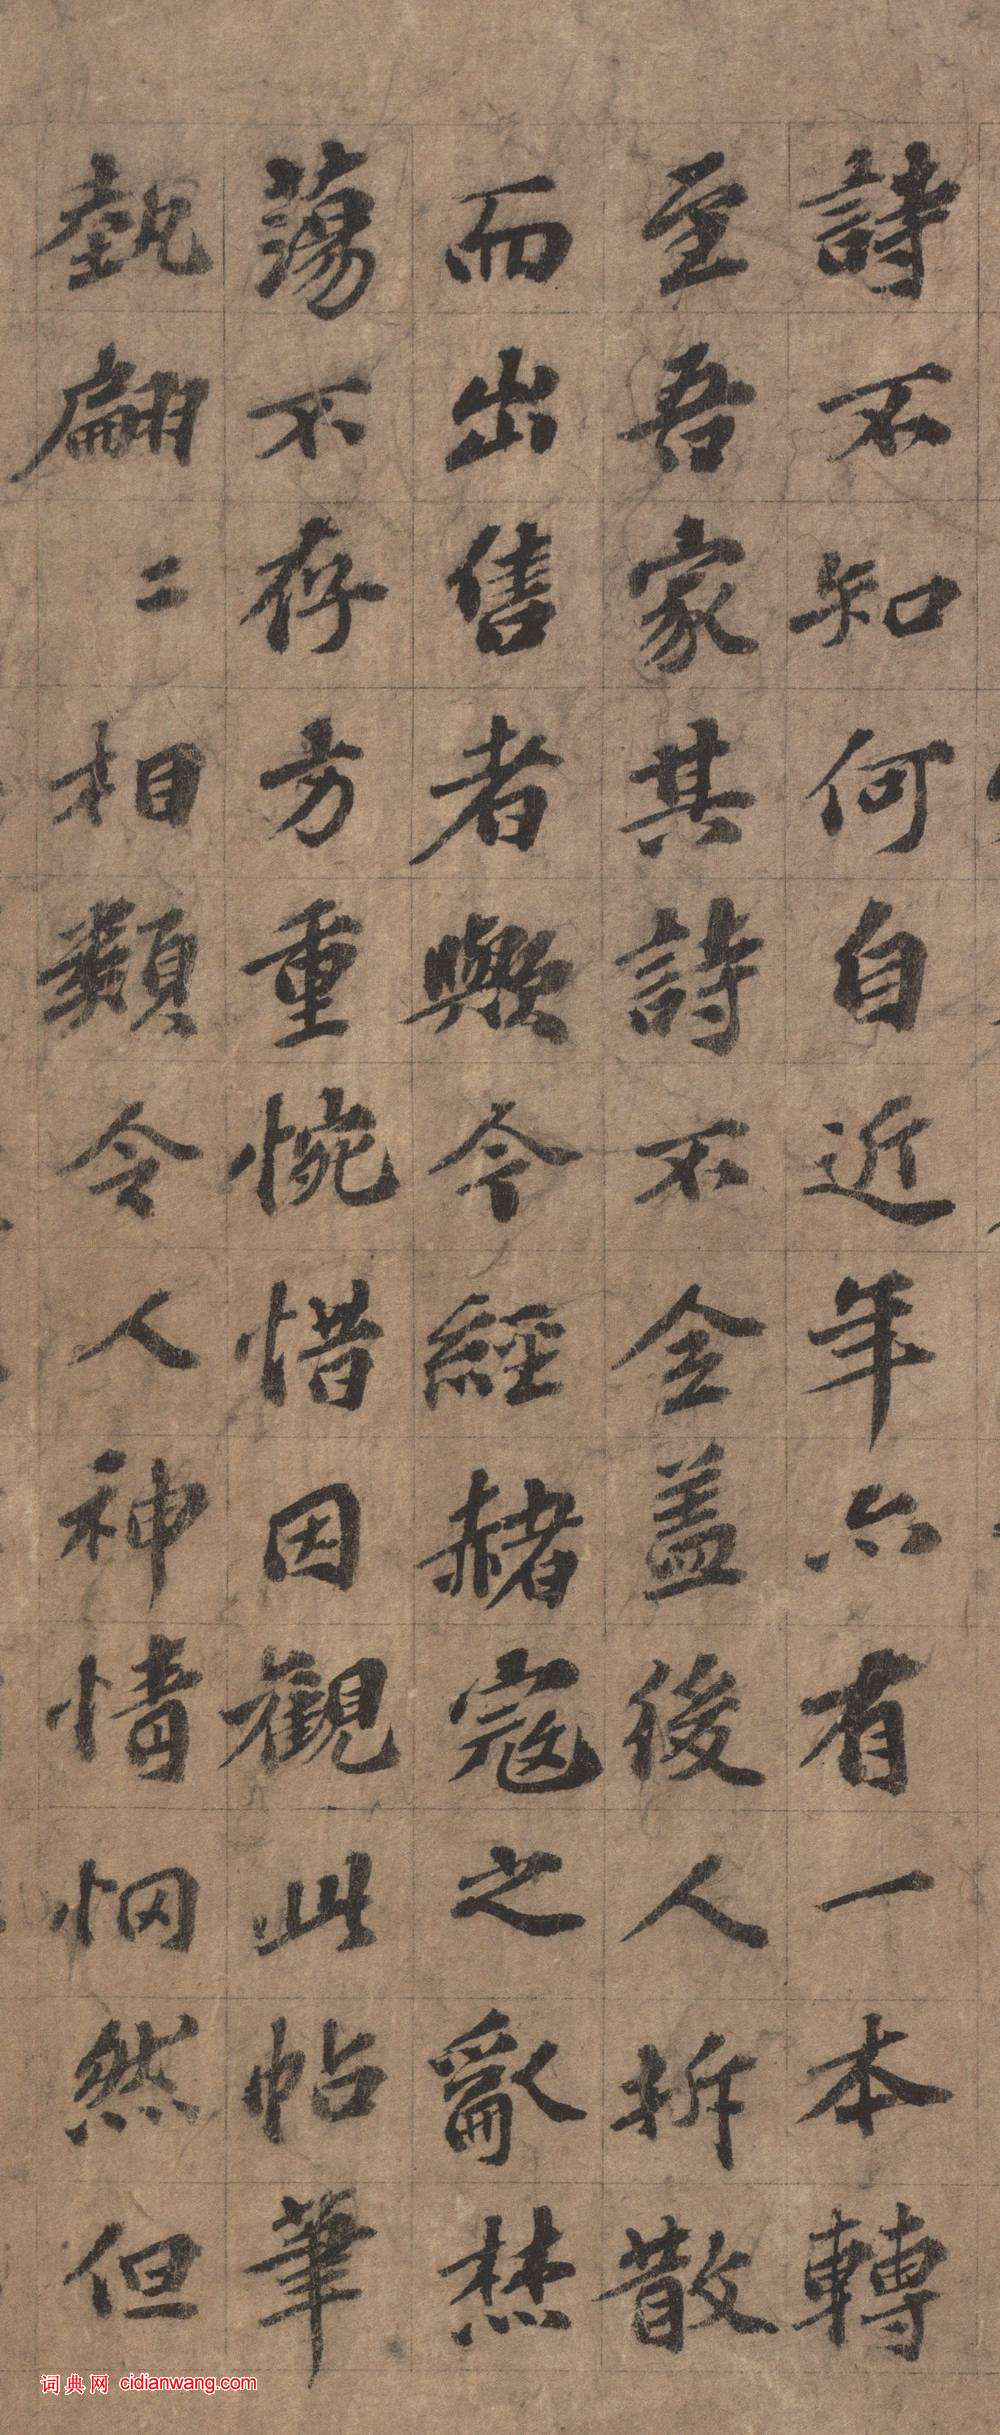 詩不知何自近年六有一本轉
至吾家其詩不全盖後人拆散
而出售者歟今經赭寇之亂焚
蕩不存方重惋惜因觀此帖筆
埶翩二相類令人神情惘然但
词典网 cidianwang.com